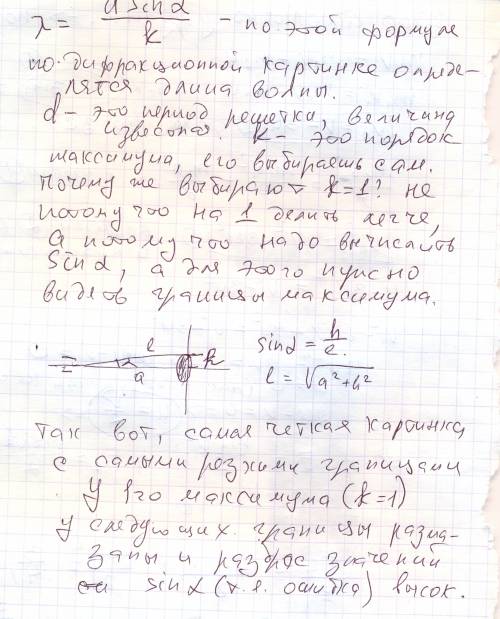 λ = d sinα / k – по этой формуле
по дифракционной картинке опреде-
лятся длина волны.
d – это период решетки, величина
известная. k – это порядок
максимума, его выбираешь сам.
Почему же выбирают k=1? не
потому что на 1 делить легче,
а потому что надо вычислить
sinα, а для этого нужно
видеть границы максимума.
l h sinα = h/l
a l = √a²+h²
Так вот, самая четкая картинка
с самыми резкими границами
у 1го максимума (k=1)
у следующих границы разма-
заны и разброс значений
sinα (т.е. ошибка) высок.